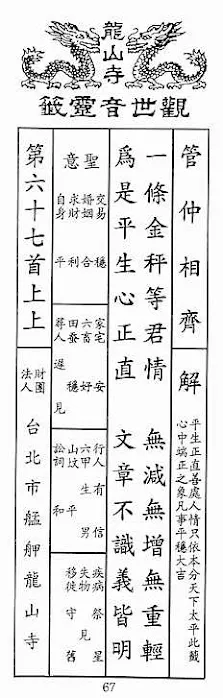 龍山寺
觀世音靈籤
管仲相齊
解
平生正直善處人情只依本分天下太平此籤
心中端正之象凡事平穩大吉
一條金秤等君情 無減無增無重輕
爲是平生心正直 文章不識義皆明
聖意
交易 穩
婚姻 合
求財 利
自身 平
家宅 安
六畜 好
田蚕 穩
尋人 遲見
行人 有信
六甲 生男
山坟 平
訟詞 和
疾病 祭星
失物 見
移徙 守舊
第六十七首上上
財團法人 台北市艋舺龍山寺
67